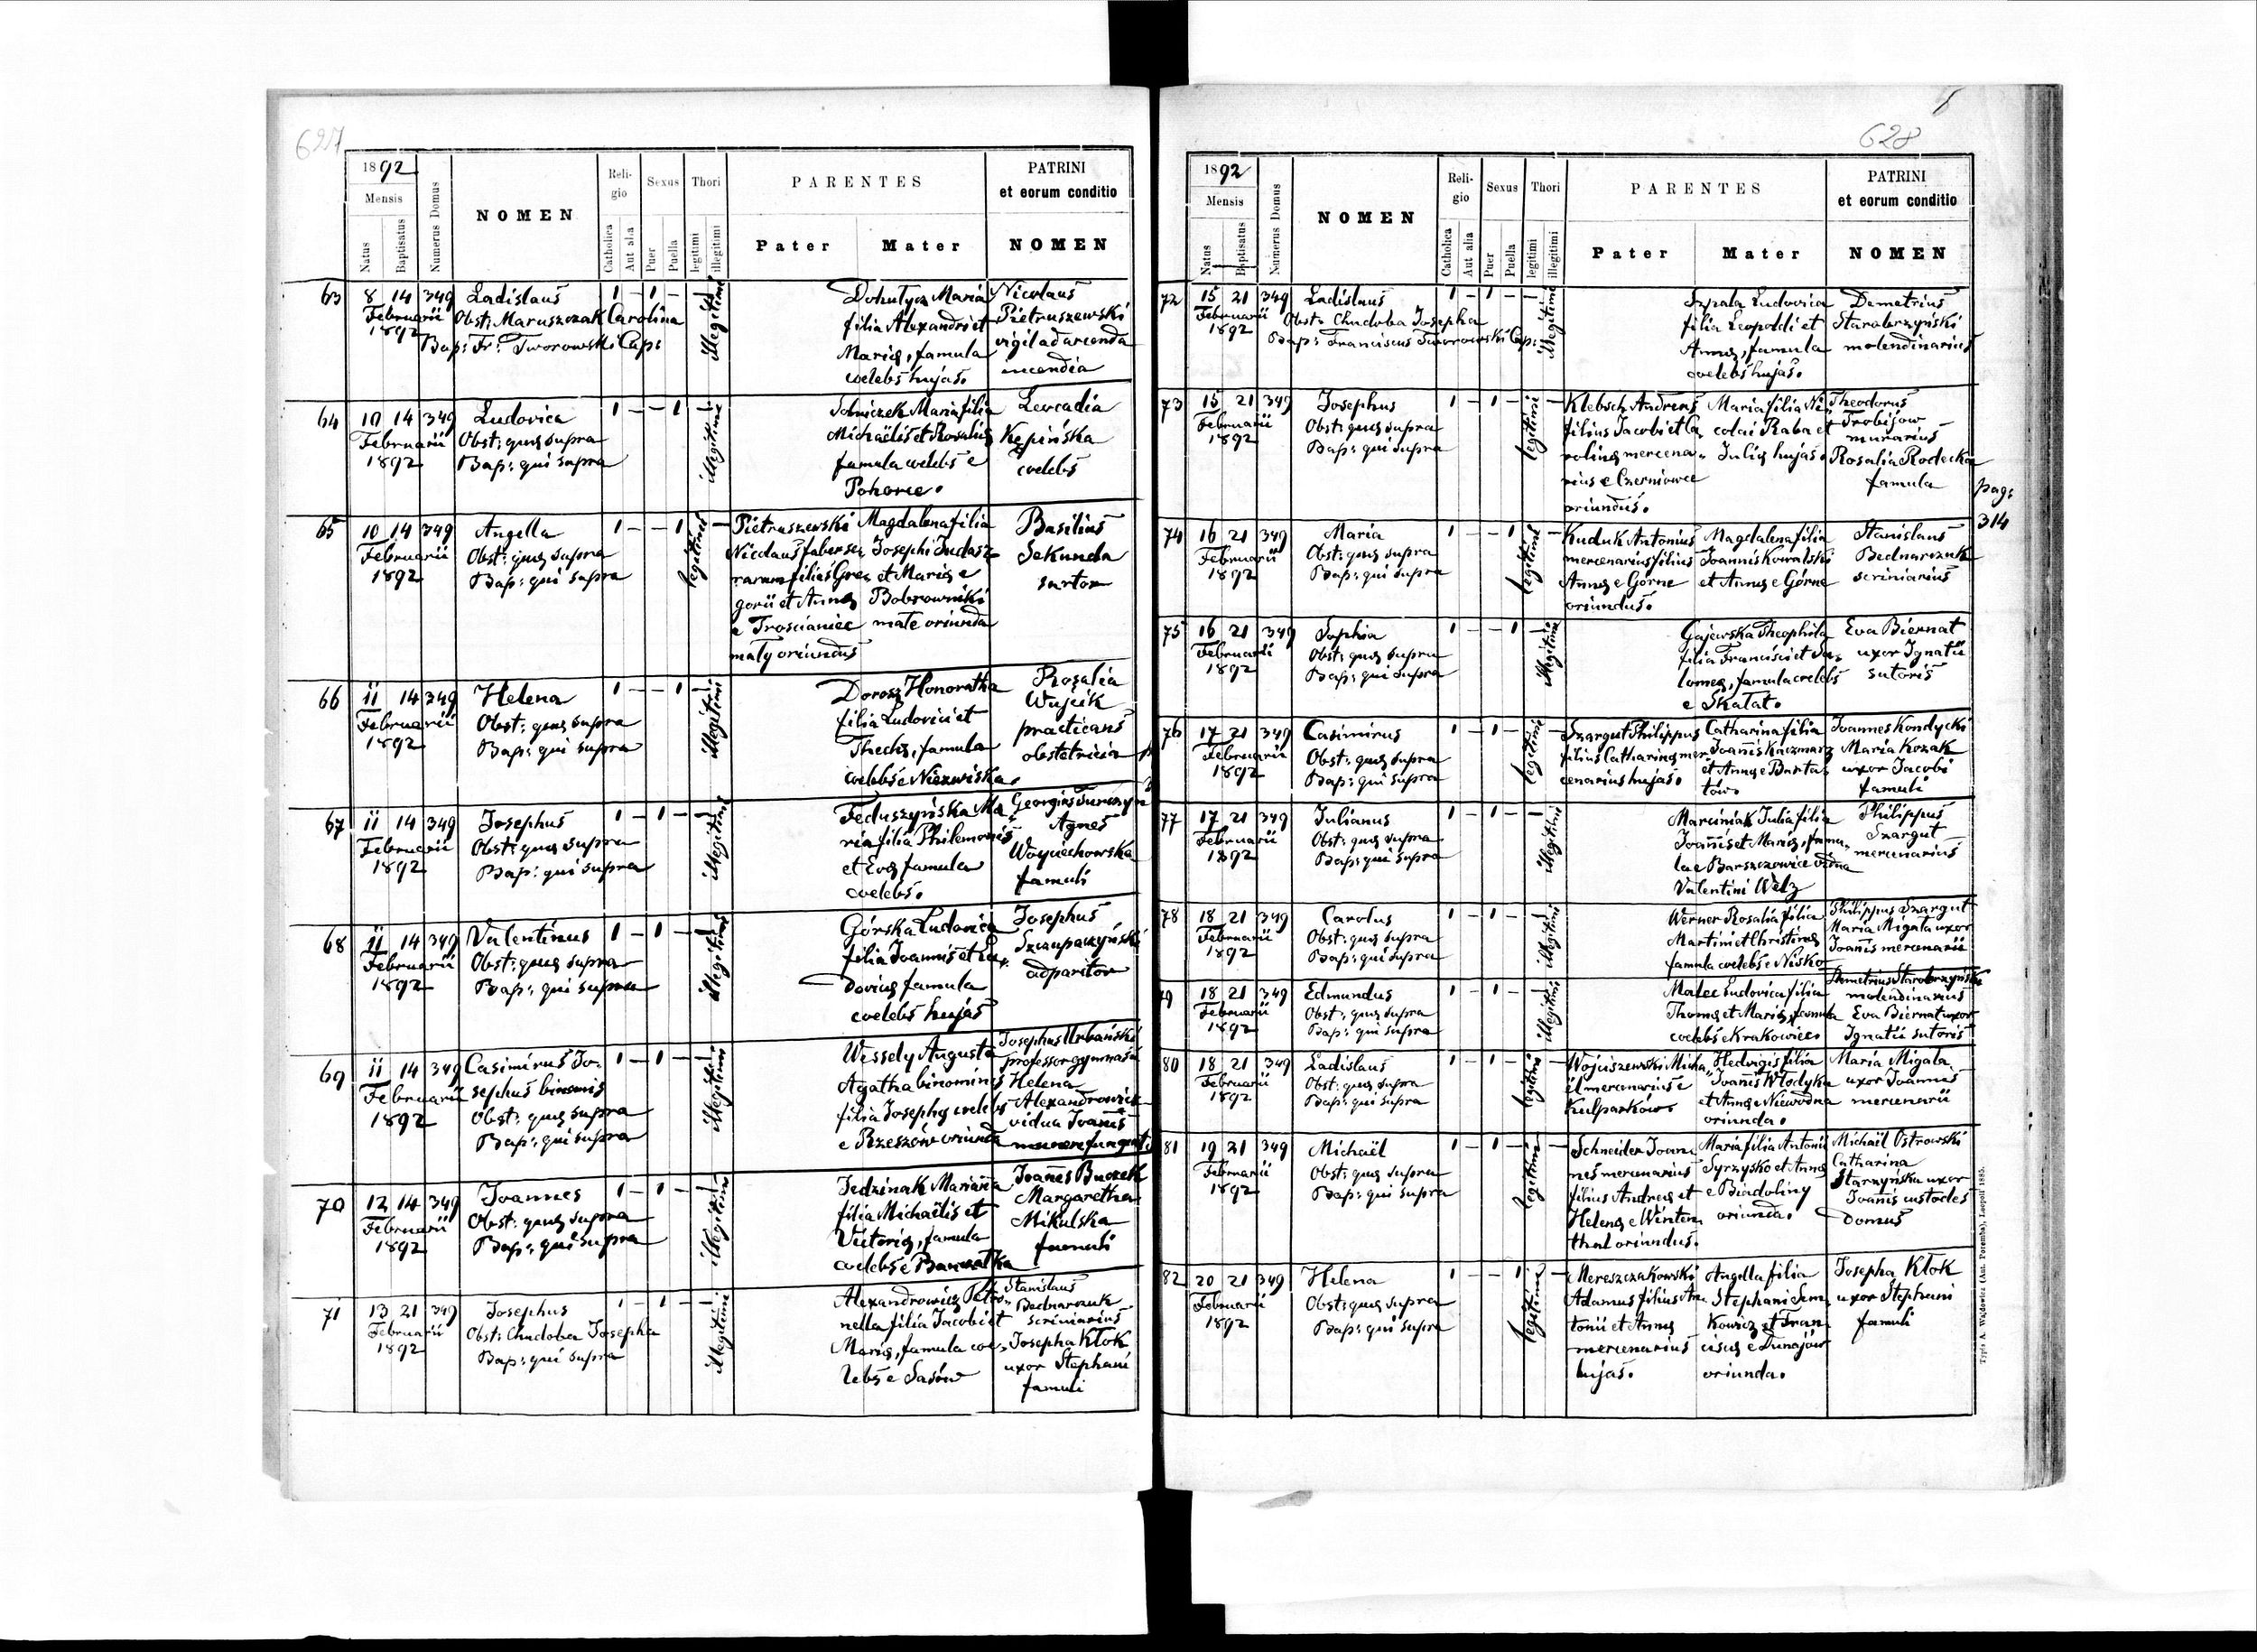 627
1892
Mensis
Natus
Baptisatus
Numerus Domus
NOMEN
Religio
Catholica
Aut alia
Sexus
Puer
Puella
Thori
legitimi
illegitimi
PARENTES
Pater
Mater
PATRINI
et eorum conditio
NOMEN
63
8 14 349
Februarii
1892
Ladislaus
Obst: Maruszczak Carolina
Bap: Fr: Tworowski Cap:
1 - 1 -
illegitimi
Maria
filia Alexandri et
Marię, famula
coelebs hujas.
Nicolaus
Pietruszewski
vigil ad arcenda
incendia
64
10 14 349
Februarii
1892
Ludovica
Obst: quę supra
Bap: qui supra
1 - - 1
illegitimi
Solniczek Maria filia
Michaëlis et Rosalię
famula coelebs e
Pohorce.
Leocadia
Kępińska
coelebs
65
10 14 349
Februarii
1892
Angella
Obst: quę supra
Bap: qui supra
1 - - 1
legitimi
Pietruszewski
Nicolaus faber ser
rarum filius Gre
gorii et Annę
e Troscianiec
maly oriundus
Magdalena filia
Josephi Judasz
et Marię e
Bobrowniki
male oriunda
Basilius
Sekunda
sartor
66
11 14 349
Februarii
1892
Helena
Obst: quę supra
Bap: qui supra
1 - - 1
illegitimi
Dorosz Honoratha
filia Ludovici et
Theclę, famula
coelebs e Niezwiska.
Rosalia
Wujcik
practicans
obstetricia
67
11 14 349
Februarii
1892
Josephus
Obst: quę supra
Bap: qui supra
1 - 1 -
illegitimi
Feduszyńska Ma
ria filia Philemonis
et Evę famula
coelebs.
Georgius
Agnes
Woyciechowska
famuli
68
11 14 349
Februarii
1892
Valentinus
Obst: quę supra
Bap: qui supra
1 - 1 -
illegitimi
Górska Ludovica
filia Joannis et Lu
dovicę famula
coelebs hujas
Josephus
Szczupaczyński
adparitor
69
11 14 349
Februarii
1892
Casimirus Jo-
sephus binomis
Obst: quę supra
Bap: qui supra
1 - 1 -
illegitimi
Wessely Augusta
Agatha binominis
filia Josephę coelebs
e Rzeszów oriunda
Josephus Urbański
professor gymnasii
Helena
Alexandrowicz
vidua Joannis
70
12 14 349
Februarii
1892
Joannes
Obst: quę supra
Bap: qui supra
1 - 1 -
illegitimi
Jedzinak Marianna
filia Michaëlis et
Victorię, famula
coelebs e
Joannes Buczek
Margaretha
Mikulska
famuli
71
13 21 349
Februarii
1892
Josephus
Obst: Chudoba Josepha
Bap: qui supra
1 - 1 -
illegitimi
Alexandrowicz Petro
nella filia Jacobi et
Marię, famula coe
lebs e Sasów
Stanislaus
Bednarczuk
scriniarius
Josepha Kłok
uxor Stephani
famuli
628
1892
Mensis
Natus
Baptisatus
Numerus Domus
NOMEN
Religio
Catholica
Aut alia
Sexus
Puer
Puella
Thori
legitimi
illegitimi
PARENTES
Pater
Mater
PATRINI
et eorum conditio
NOMEN
72
15 21 349
Februarii
1892
Ladislaus
Obst: Chudoba Josepha
Bap: Franciscus Tworowski Cap:
1 - 1 -
illegitimi
Szpala Ludovica
filia Leopoldi et
Annę, famula
coelebs hujas.
Demetrius
Starobrzyński
molendinarius
73
15 21 349
Februarii
1892
Josephus
Obst: quę supra
Bap: qui supra
1 - 1 -
legitimi
Klebsch Andreas
filius Jacobi et Ca
rolinę mercena
rius e Czerniowce
oriundus.
Maria filia Ni
colai Raba et
Julię hujas.
Theodorus
Trobijow
murarius
Rosalia Rodecka
famula
pag:
314
74
16 21 349
Februarii
1892
Maria
Obst: quę supra
Bap: qui supra
1 - - 1
legitimi
Kuduk Antonius
mercenarius filius
Annę e Górne
oriundus.
Magdalena filia
Joannis Kowalski
et Annę e Górne
Stanislaus
Bednarczuk
scriniarius
75
16 21 349
Februarii
1892
Sophia
Obst: quę supra
Bap: qui supra
1 - - 1
illegitimi
Gajewska Theophila
filia Francisci et Sa
lomeę, famula coelebs
e Skałat.
Eva Biernat
uxor Ignatii
sutoris
76
17 21 349
Februarii
1892
Casimirus
Obst: quę supra
Bap: qui supra
1 - 1 -
legitimi
Szargut Philippus
filius Catharinę mer
cenarius hujas.
Catharina filia
Joannis Kaczmarz
et Annę e Burta
tów.
Joannes Kondycki
Maria Kozak
uxor Jacobi
famuli
77
17 21 349
Februarii
1892
Julianus
Obst: quę supra
Bap: qui supra
1 - 1 -
illegitimi
Marciniak Julia filia
Joannis et Marię, famu
la e Barszczowice vidua
Valentini Welz
Philippus
Szargut
mercenarius
78
18 21 349
Februarii
1892
Carolus
Obst: quę supra
Bap: qui supra
1 - 1 -
illegitimi
Werner Rosalia filia
Martini et Christinę
famula coelebs e Nisko
Philippus Szargut
Maria Migała uxor
Joannis mercenarii
79
18 21 349
Februarii
1892
Edmundus
Obst: quę supra
Bap: qui supra
1 - 1 -
illegitimi
Malec Ludovica filia
Thomę et Marię, famula
coelebs e Krakowiec.
Demetrius Starobrzyński
molendinarius
Eva Biernat uxor
Ignatii sutoris
80
18 21 349
Februarii
1892
Ladislaus
Obst: quę supra
Bap: qui supra
1 - 1 -
legitimi
Wojciszewski Micha
ël mercenarius e
Kulparków.
Hedvigis filia
Joannis Włodyka
et Annę e Niewodna
oriunda.
Maria Migała
uxor Joannis
mercenarii
81
19 21 349
Februarii
1892
Michaël
Obst: quę supra
Bap: qui supra
1 - 1 -
legitimi
Schneider Joan
nes mercenarius
filius Andreę et
Helenę e Winten
thal oriundus.
Maria filia Antonii
Syrzysko et Annę
e Biadoliny
oriunda.
Michaël Ostrowski
Catharina
Starzyńska uxor
Joannis custodes
domus
82
20 21 349
Februarii
1892
Helena
Obst: quę supra
Bap: qui supra
1 - - 1
legitimi
Mereszczakowski
Adamus filius An
tonii et Annę
mercenarius
hujas.
Angella filia
Stephani Sem
kowicz et Fran
ciscę e Dunajów
oriunda.
Josepha Kłok
uxor Stephani
famuli
Typis A. Wajdowicz (Ant. Poremba), Leopoli 1885.